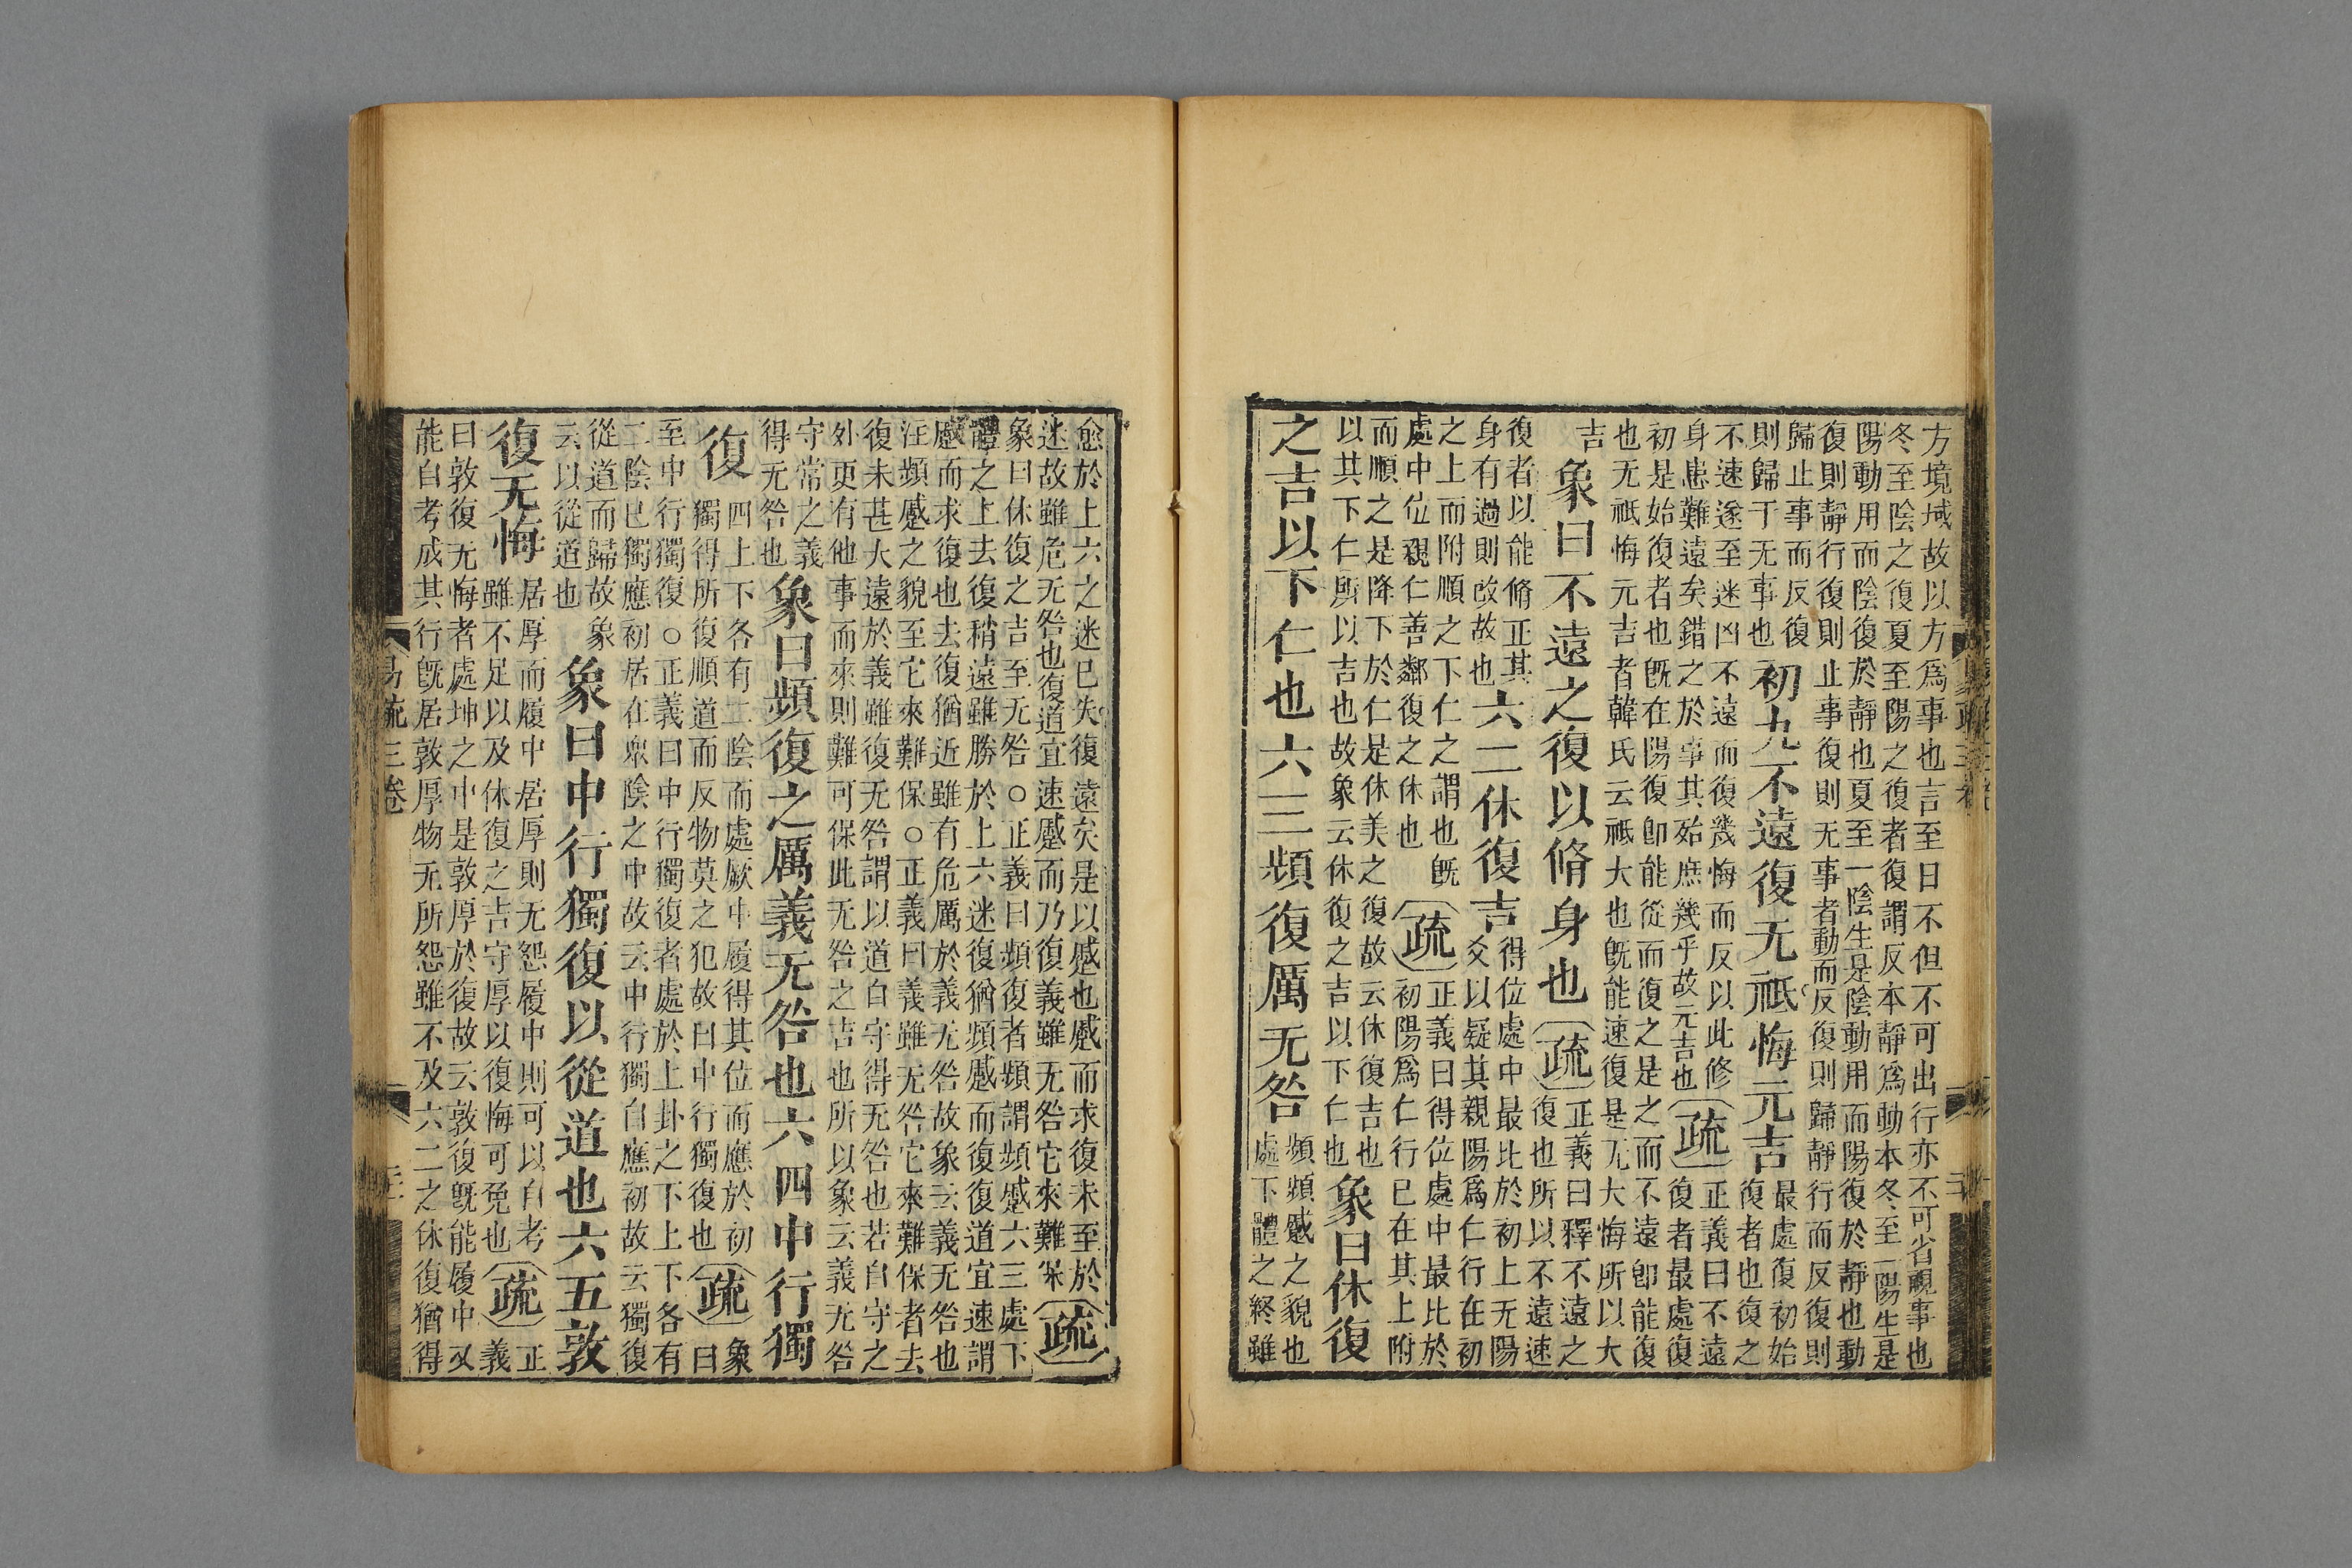 方境域故以方爲事也言至日不但不可出行亦不可省視事也
冬至陰之復夏至陽之復者復謂反本靜爲動本冬至一陽生是
陽動用而陰復於靜也夏至一陰生是陰動用而陽復於靜也動
復則靜行復則止事復則无事者動而反復則歸靜行而反復則
歸止事而反復
則歸于无事也
初九不遠復无祗悔元吉
最處復初始
復者也復之
不速遂至迷凶不遠而復幾悔而反以此修
身患難遠矣錯之於事其殆庶幾乎故元吉也
疏
正義曰不遠
復者最處復
初是始復者也旣在陽復卽能從而復之是之而不遠卽能復
也无祗悔元吉者韓氏云祗大也旣能速復是无大悔所以大
吉
象曰不遠之復以脩身也
疏
正義曰釋不遠之
復也所以不遠速
復者以能脩正其
身有過則改故也
六二休復吉
得位處中最比於初上无陽
爻以疑其親陽爲仁行在初
之上而附順之下仁之謂也旣
處中位親仁善鄰復之休也
疏
正義曰得位處中最比於
初陽爲仁行已在其上附
而順之是降下於仁是休美之復故云休復吉也
以其下仁所以吉也故象云休復之吉以下仁也
象曰休復
之吉以下仁也六三頻復厲无咎
頻頻蹙之貌也
處下體之終雖
愈於上六之迷已失復遠矣是以蹙也蹙而求復未至於
迷故雖危无咎也復道宜速蹙而乃復義雖无咎它來難保
疏
象曰休復之吉至无咎○正義曰頻復者頻謂頻蹙六三處下
體之上去復稍遠雖勝於上六迷復猶頻蹙而復復道宜速謂
蹙而求復也去復猶近雖有危厲於義无咎故象云義无咎也
注頻蹙之貌至它來難保○正義曰義雖无咎它來難保者去
復未甚大遠於義雖復无咎謂以道自守得无咎也若自守之
外更有他事而來則難可保此无咎之吉也所以象云義无咎
守常之義
得无咎也
象曰頻復之厲義无咎也六四中行獨
復
四上下各有二陰而處厥中履得其位而應於初
獨得所復順道而反物莫之犯故曰中行獨復也
疏
象
曰
至中行獨復○正義曰中行獨復者處於上卦之下上下各有
二陰已獨應初居在衆陰之中故云中行獨自應初故云獨復
從道而歸故象
云以從道也
象曰中行獨復以從道也六五敦
復无悔
居厚而履中居厚則无怨履中則可以自考
雖不足以及休復之吉守厚以復悔可免也
疏
正
義
曰敦復无悔者處坤之中是敦厚於復故云敦復旣能履中又
能自考成其行旣居敦厚物无所怨雖不及六二之休復猶得
易疏三卷